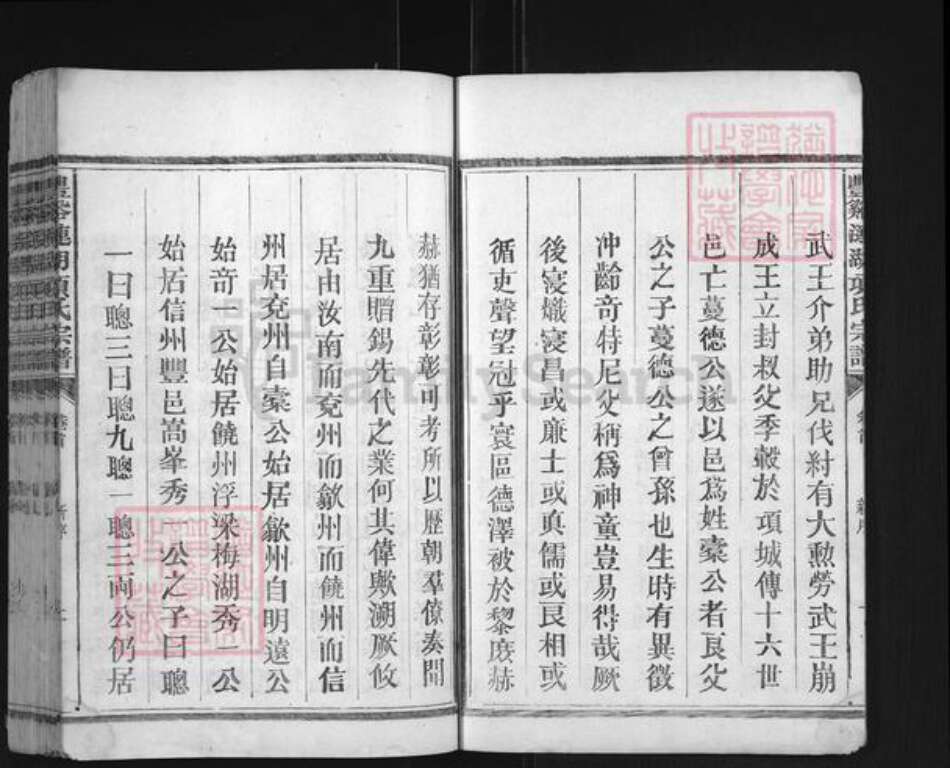 武王介弟助兄伐紂有大勲勞武王崩
成王立封叔父季轂於項城傳十六世
邑亡蔓德公遂以邑爲姓橐公者良父
公之子蔓德公之曾孫也生時有異徵
冲齡奇特尼父稱爲神童豈易得哉厥
後寖熾寖昌或廉士或眞儒或良相或
循吏聲望冠乎寰區德澤被於黎庶赫
赫猶存彰彰可考所以歷朝羣僚奏聞
九重贈錫先代之業何其偉歟溯厥攸
居由汝南而兗州而歙州而饒州而信
州居兗州自橐公始居歙州自明遠公
始奇一公始居饒州浮梁梅湖秀一公
始居信州豐邑嵩峯秀一公之子曰聰
一曰聰三曰聰九聰一聰三両公仍居
湖項氏宗譜
卷首
FamilySearch